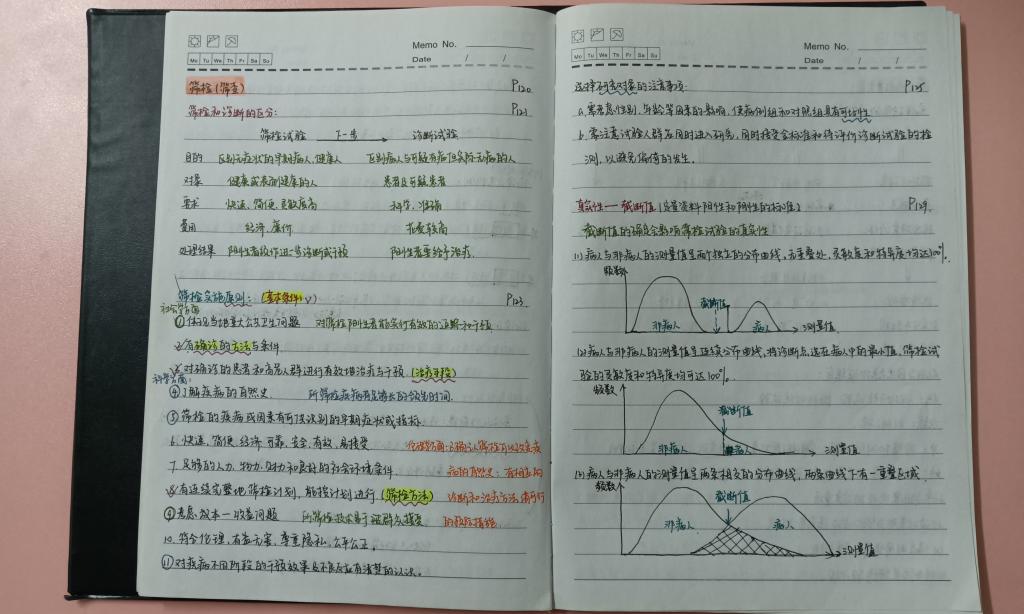 Memo No.
Mo Tu We Th Fr Sa Su
Date / /
筛检(筛查) P120
筛检和诊断的区分: P121
筛检试验 下一步 诊断试验
目的 区别无症状的早期病人、健康人 区别病人与可疑有病但实际无病的人
对象 健康或表面健康的人 患者及可疑患者
要求 快速、简便、灵敏度高 科学、准确
费用 经济、廉价 花费较高
处理结果 阳性者须作进一步诊断或干预 阳性者要给予治疗.
筛检实施原则: (基本条件 √) P123
社会学方面
①体现当地重大公共卫生问题 对筛检阳性者能实行有效的追踪和干预
2.有确诊的方法与条件
3.对确诊的患者和高危人群进行有效地治疗与干预 (治疗手段)
科学方面:
④了解疾病的自然史. 所筛检疾病有足够长的领先时间.
⑤筛检的疾病或因素有可供识别的早期症状或指标
6.快速、简便、经济、可靠、安全、有效、易接受 伦理方面:明确认筛检可以改变疾
7.足够的人力、物力、财力和良好的社会环境条件 病的自然史;有相应的
8.有连续完整地筛检计划,能按计划进行 (筛检方法) 诊断和治疗方法;有可行
⑨考虑成本—收益问题 所筛检技术易于被群众接受 的预防措施.
10.符合伦理,有益无害,尊重隐私,公平公正。
⑪对疾病不同阶段的干预效果及不良反应有清楚的认识。
Memo No.
Mo Tu We Th Fr Sa Su
Date / /
选择研究对象的注意事项: P125
a.需考虑性别、年龄等因素的影响,使病例组和对照组具有可比性
b.需注意试验人群应同时进入研究,同时接受金标准和待评价诊断试验的检
测,以避免偏倚的发生.
真实性——截断值(定量资料阳性和阴性的标准) P129
截断值的确定会影响筛检试验的真实性
(1)病人与非病人的测量值是两个独立的分布曲线,无重叠处,灵敏度和特异度均可达100%.
频数
截断值
非病人 病人 测量值.
(2)病人与非病人的测量值呈连续分布曲线,将诊断点选在病人中的最小值,筛检试
验的灵敏度和特异度均可达100%.
频数
截断值
非病人 病人 测量值
(3)病人与非病人的测量值是两条相交的分布曲线,两条曲线下有一重叠区域.
频数
截断值
非病人 病人 测量值